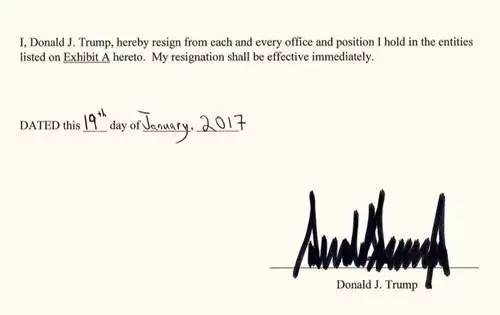 I, Donald J. Trump, hereby resign from each and every office and position I hold in the entities
listed on Exhibit A hereto. My resignation shall be effective immediately.
DATED this 19th day of January, 2017
Donald J. Trump